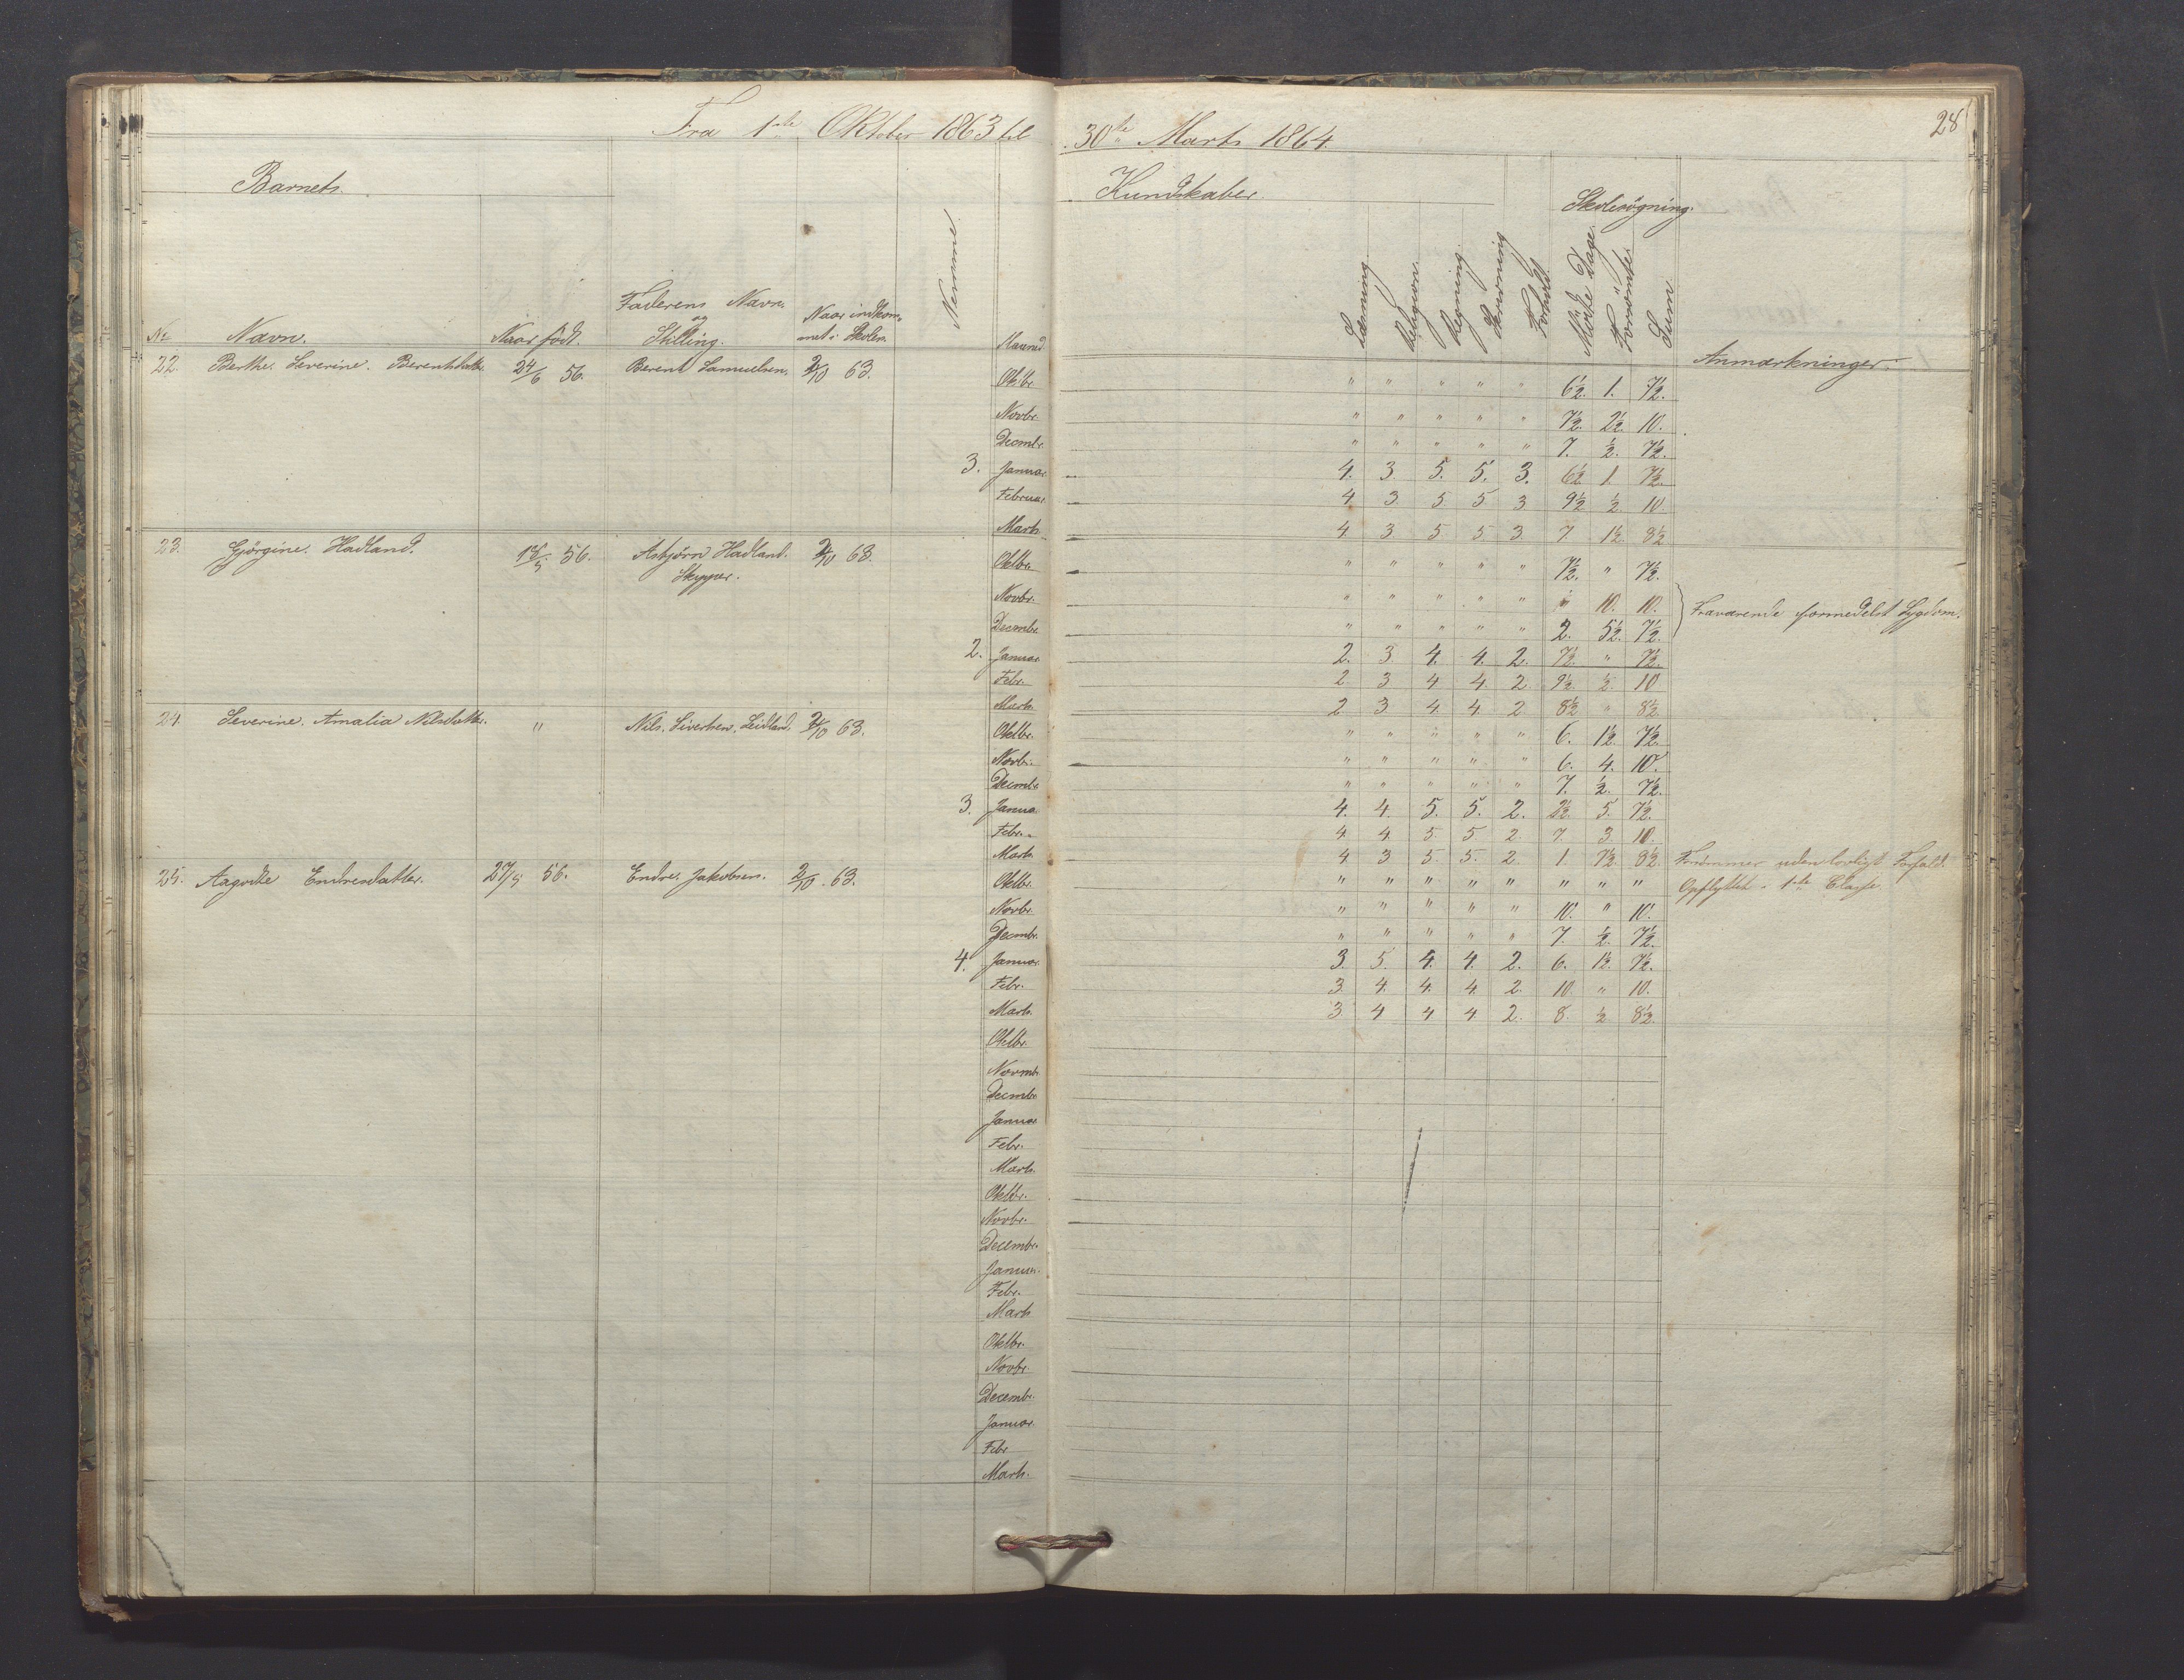 Fra 1ste Oktober 1863 til 30te Marts 1864.
28
Barnets. Kundskaber. Skolesøgning.
No Navn. Naar født. Faderens Navn og Stilling. Naar indkommet i Skolen. Nemme Maaned Læsning Religion. Regning Skrivning Forhold. Mødte Dage. Forsømte " Sum Anmærkninger.
22. Berthe. Severine. Berentsdatter. 24/6 56. Berent Samuelsen. 2/10 63. Oktbr. " " " " " 6½. 1. 7½.
Novbr. " " " " " 7½. 2½. 10.
Decmbr. " " " " " 7. ½. 7½.
3. Januar. 4. 3. 5. 5. 3. 6½ 1. 7½.
Februar. 4. 3. 5 5 3. 9½ ½ 10
Marts. 4 3 5 5 3. 7. 1½. 8½
23. Gjørgine. Hadland. 56. Asbjørn Hadland. Skipper. 2/10 63. Oktbr. " " " " " 7½. " 7½.
Novbr. " " " " " " 10. 10. Fraværende formedelst Sygdom.
Decmbr. " " " " " 2. 5½. 7½.
2. Januar. 2. 3. 4. 4. 2. 7½. " 7½.
Febr. 2 3 4 4. 2. 9½. ½. 10
Marts. 2. 3 4. 4. 2 8½ " 8½
24. Severine. Amalia Nilsdatter. " Nils. Sivertsen. Leidland. 2/10 63. Oktbr. " " " " " 6. 1½. 7½.
Novbr. " " " " " 6. 4. 10.
Decmbr. " " " " " 7. ½. 7½.
3. Januar 4. 4. 5. 5. 2. 2½. 5. 7½.
Febr. 4. 4. 5. 5 2. 7. 3. 10.
Marts. 4. 3 5. 5. 2. 1. 7½. 8½. Forsømmer uden lovligt Forfald.
25. Aagodte Endresdatter. 27/5 56. Endre. Jakobsen. 2/10. 63. Oktbr. " " " " " " " " Opflyttet i 1ste Classe.
Novbr. " " " " " 10. " 10.
Decmbr. " " " " " 7. ½. 7½.
4. Januar. 3. 5. 4. 4. 2. 6. 1½. 7½.
Febr. 3. 4. 4. 4. 2. 10. " 10.
Marts. 3 4 4 4. 2. 8. ½ 8½.
Oktbr.
Novmbr.
Decmbr.
Januar
Febr.
Marts.
Oktbr.
Novbr.
Decembr.
Januar.
Febr.
Marts
Oktbr.
Novbr.
Decembr.
Januar.
Febr
Marts.